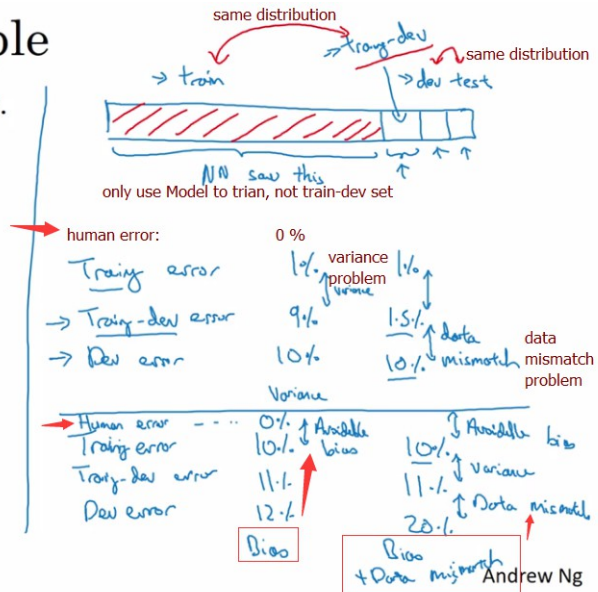 ple
.
same distribution
→ train
→ traing-dev
same distribution
→ dev test
NN saw this
only use Model to trian, not train-dev set
human error: 0 %
Traing error 1% variance problem 1%
variance
→ Traing-dev error 9% 1.5% data mismatch
→ Dev error 10% 10%
data mismatch problem
Variance
Human error ---- 0% Avoidable bias Avoidable bias
Traing error 10% 10%
Variance
Traing-dev error 11% 11%
Data mismatch
Dev error 12% 20%
Bias
Bias
+ Data mismatch
Andrew Ng